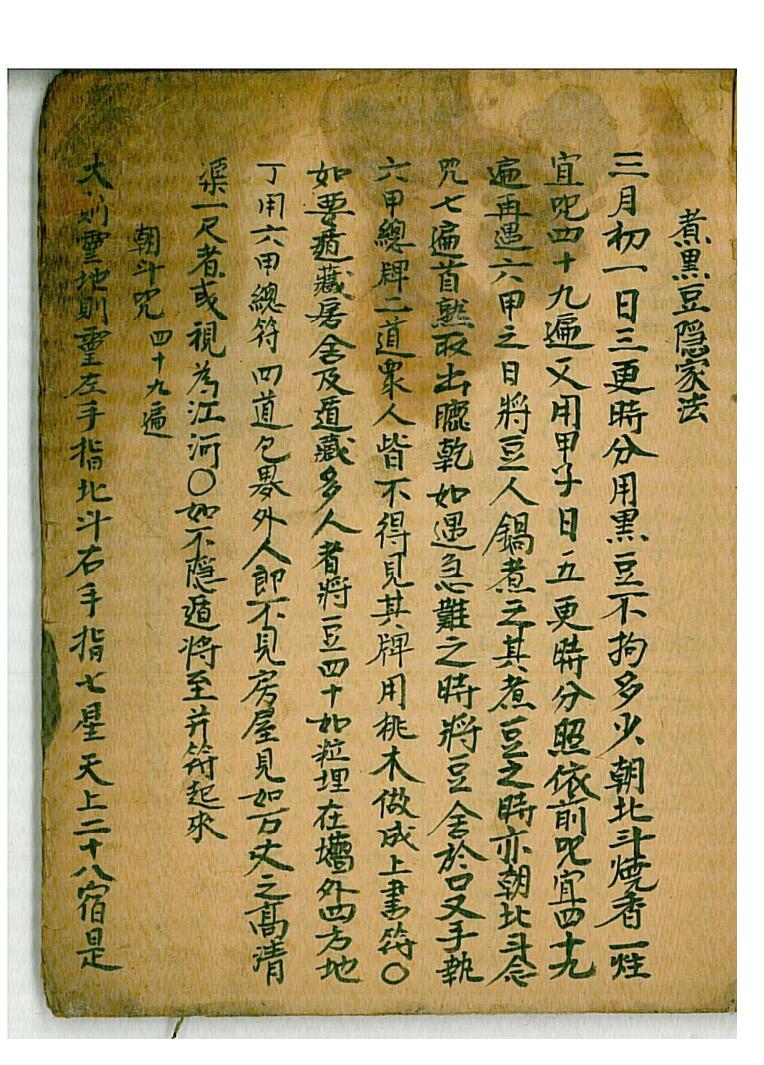 煮黑豆隐家法
三月初一日三更時分用黒豆不拘多少朝北斗燒香一炷
宜咒四十九遍又用甲子日五更時分照依前咒宜四十九
遍再遇六甲之日將豆人鍋煮之其煮豆之時亦朝北斗念
咒七遍首熟取出曬乾如遇急難之時將豆舍於口又手執
六甲總牌二道衆人皆不得見其牌用桃木做成上書符〇
如要遁藏房舍及遁藏多人者將豆四十如粒埋在墻外四方地
丁用六甲總符四道包畧外人即不見房屋見如万丈之高清
渠一尺者或視為江河〇如不隱遁將至并符起來
朝斗咒 四十九遍
天則靈地則靈左手指北斗右手指七星天上二十八宿是